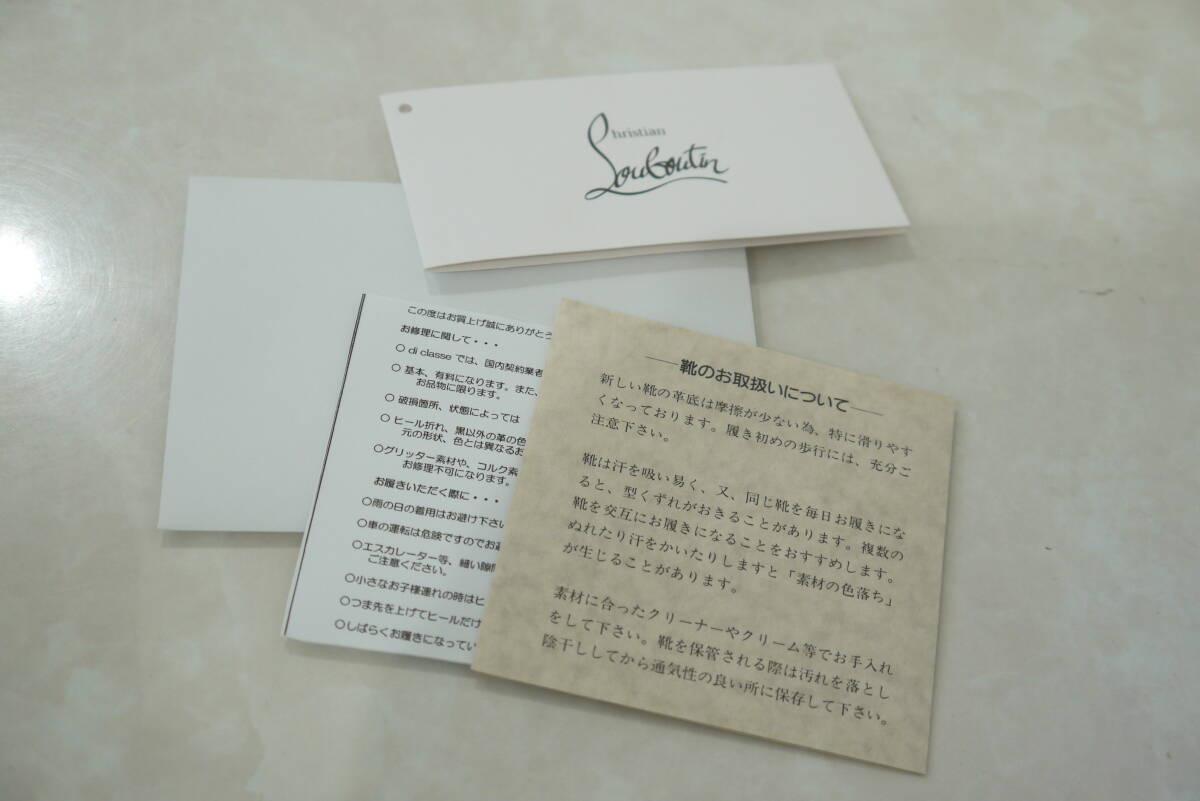 Christian
Louboutin
この度はお買上げ誠にありがとう
お修理に関して・・・
○ di classe では、国内契約業者
○ 基本、有料になります。また、
お品物に限ります。
○ 破損箇所、状態によっては
○ ヒール折れ、黒以外の革の色
元の形状、色とは異なるお
○グリッター素材や、コルク素
お修理不可になります。
お履きいただく際に・・・
○雨の日の着用はお避け下さい
○車の運転は危険ですのでお避
○エスカレーター等、細い隙間
ご注意ください。
○小さなお子様連れの時はヒ
○つま先を上げてヒールだけ
○しばらくお履きになってい
靴のお取扱いについて
新しい靴の革底は摩擦が少ない為、特に滑りやす
くなっております。履き初めの歩行には、充分ご
注意下さい。
靴は汗を吸い易く、又、同じ靴を毎日お履きにな
ると、型くずれがおきることがあります。複数の
靴を交互にお履きになることをおすすめします。
ぬれたり汗をかいたりしますと「素材の色落ち」
が生じることがあります。
素材に合ったクリーナーやクリーム等でお手入れ
をして下さい。靴を保管される際は汚れを落とし
陰干ししてから通気性の良い所に保存して下さい。